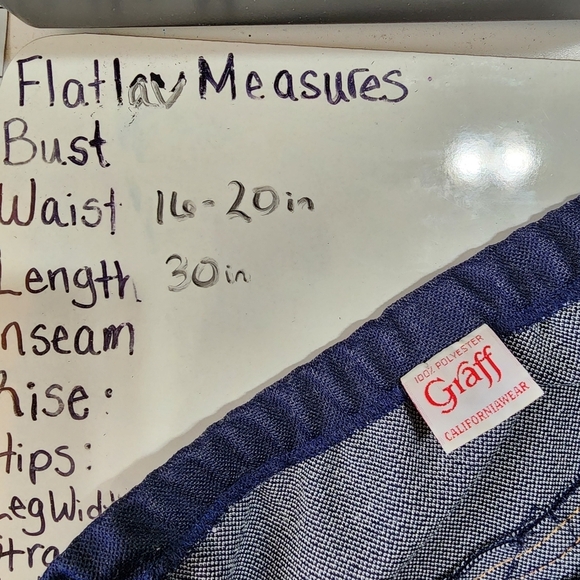 Flatlay Measures
Bust
Waist 16-20in
Length 30in
nseam
Rise:
Hips:
LegWidth
tra
100% POLYESTER
Graff
CALIFORNIAWEAR